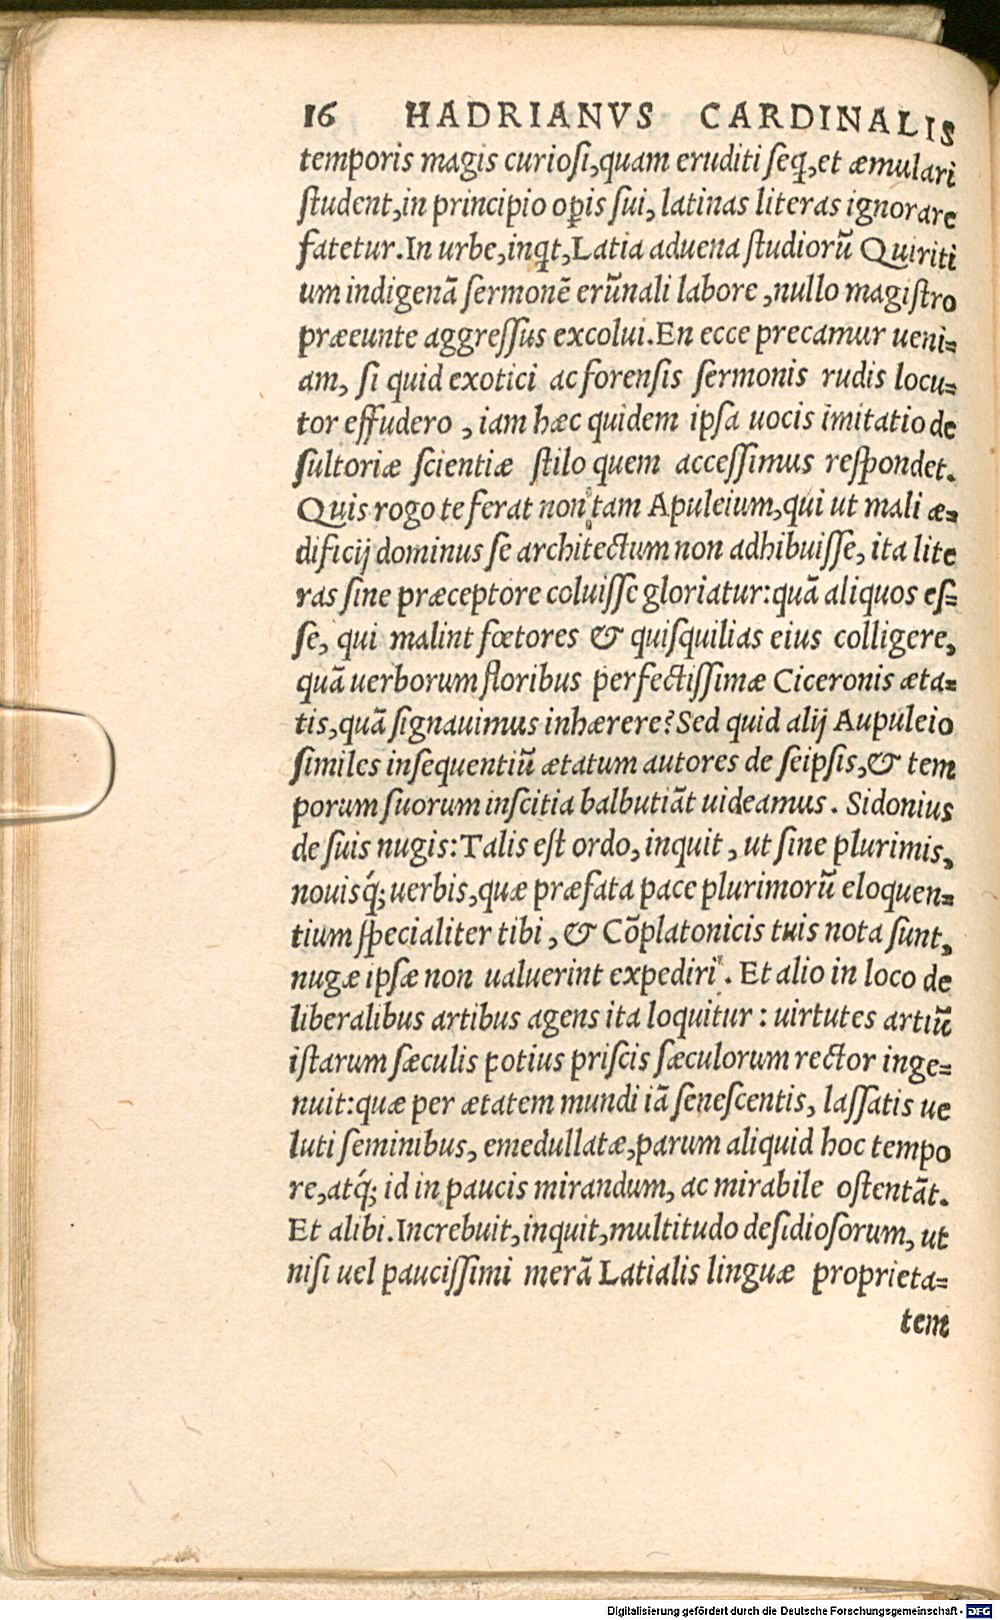 16 HADRIANVS CARDINALIS
temporis magis curiosi, quam eruditi seq̃, et æmulari
student, in principio op̃is sui, latinas literas ignorare
fatetur. In urbe, inqt, Latia aduena studiorũ Quiriti
um indigenã sermonẽ erũnali labore, nullo magistro
præeunte aggressus excolui. En ecce precamur ueni=
am, si quid exotici ac forensis sermonis rudis locu=
tor effudero, iam hæc quidem ipsa uocis imitatio de
sultoriæ scientiæ stilo quem accessimus respondet.
Quis rogo te ferat non tam Apuleium, qui ut mali æ=
dificij dominus se architectum non adhibuisse, ita lite
ras sine præceptore coluisse gloriatur: quã aliquos es=
se, qui malint fœtores & quisquilias eius colligere,
quã uerborum floribus perfectissimæ Ciceronis æta=
tis, quã signauimus inhærere? Sed quid alij Aupuleio
similes insequentiũ ætatum autores de seipsis, & tem
porum suorum inscitia balbutiãt uideamus. Sidonius
de suis nugis: Talis est ordo, inquit, ut sine plurimis,
nouisq́; uerbis, quæ præfata pace plurimorũ eloquen=
tium specialiter tibi, & Cõplatonicis tuis nota sunt,
nugæ ipsæ non ualuerint expediri. Et alio in loco de
liberalibus artibus agens ita loquitur: uirtutes artiũ
istarum sæculis potius priscis sæculorum rector inge=
nuit: quæ per ætatem mundi iã senescentis, lassatis ue
luti seminibus, emedullatæ, parum aliquid hoc tempo
re, atq́; id in paucis mirandum, ac mirabile ostentãt.
Et alibi. Increbuit, inquit, multitudo desidiosorum, ut
nisi uel paucissimi merã Latialis linguæ proprieta=
tem
Digitalisierung gefördert durch die Deutsche Forschungsgemeinschaft - DFG